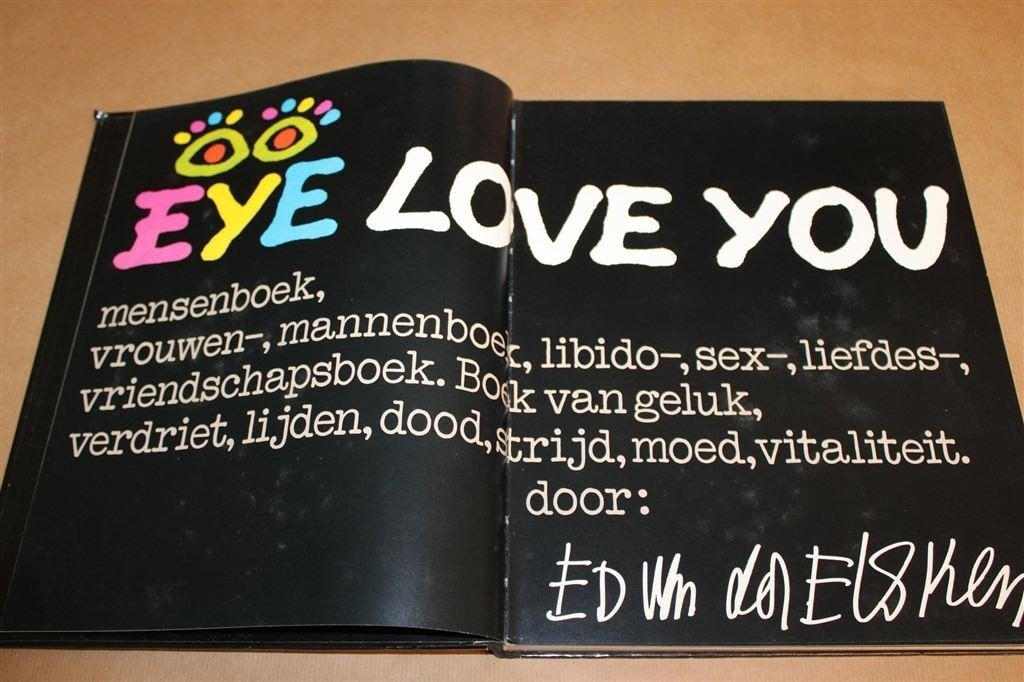 EYE LOVE YOU
mensenboek,
vrouwen-, mannenboek, libido-, sex-, liefdes-,
vriendschapsboek. Boek van geluk,
verdriet, lijden, dood, strijd, moed, vitaliteit.
door:
ED van der Elsken